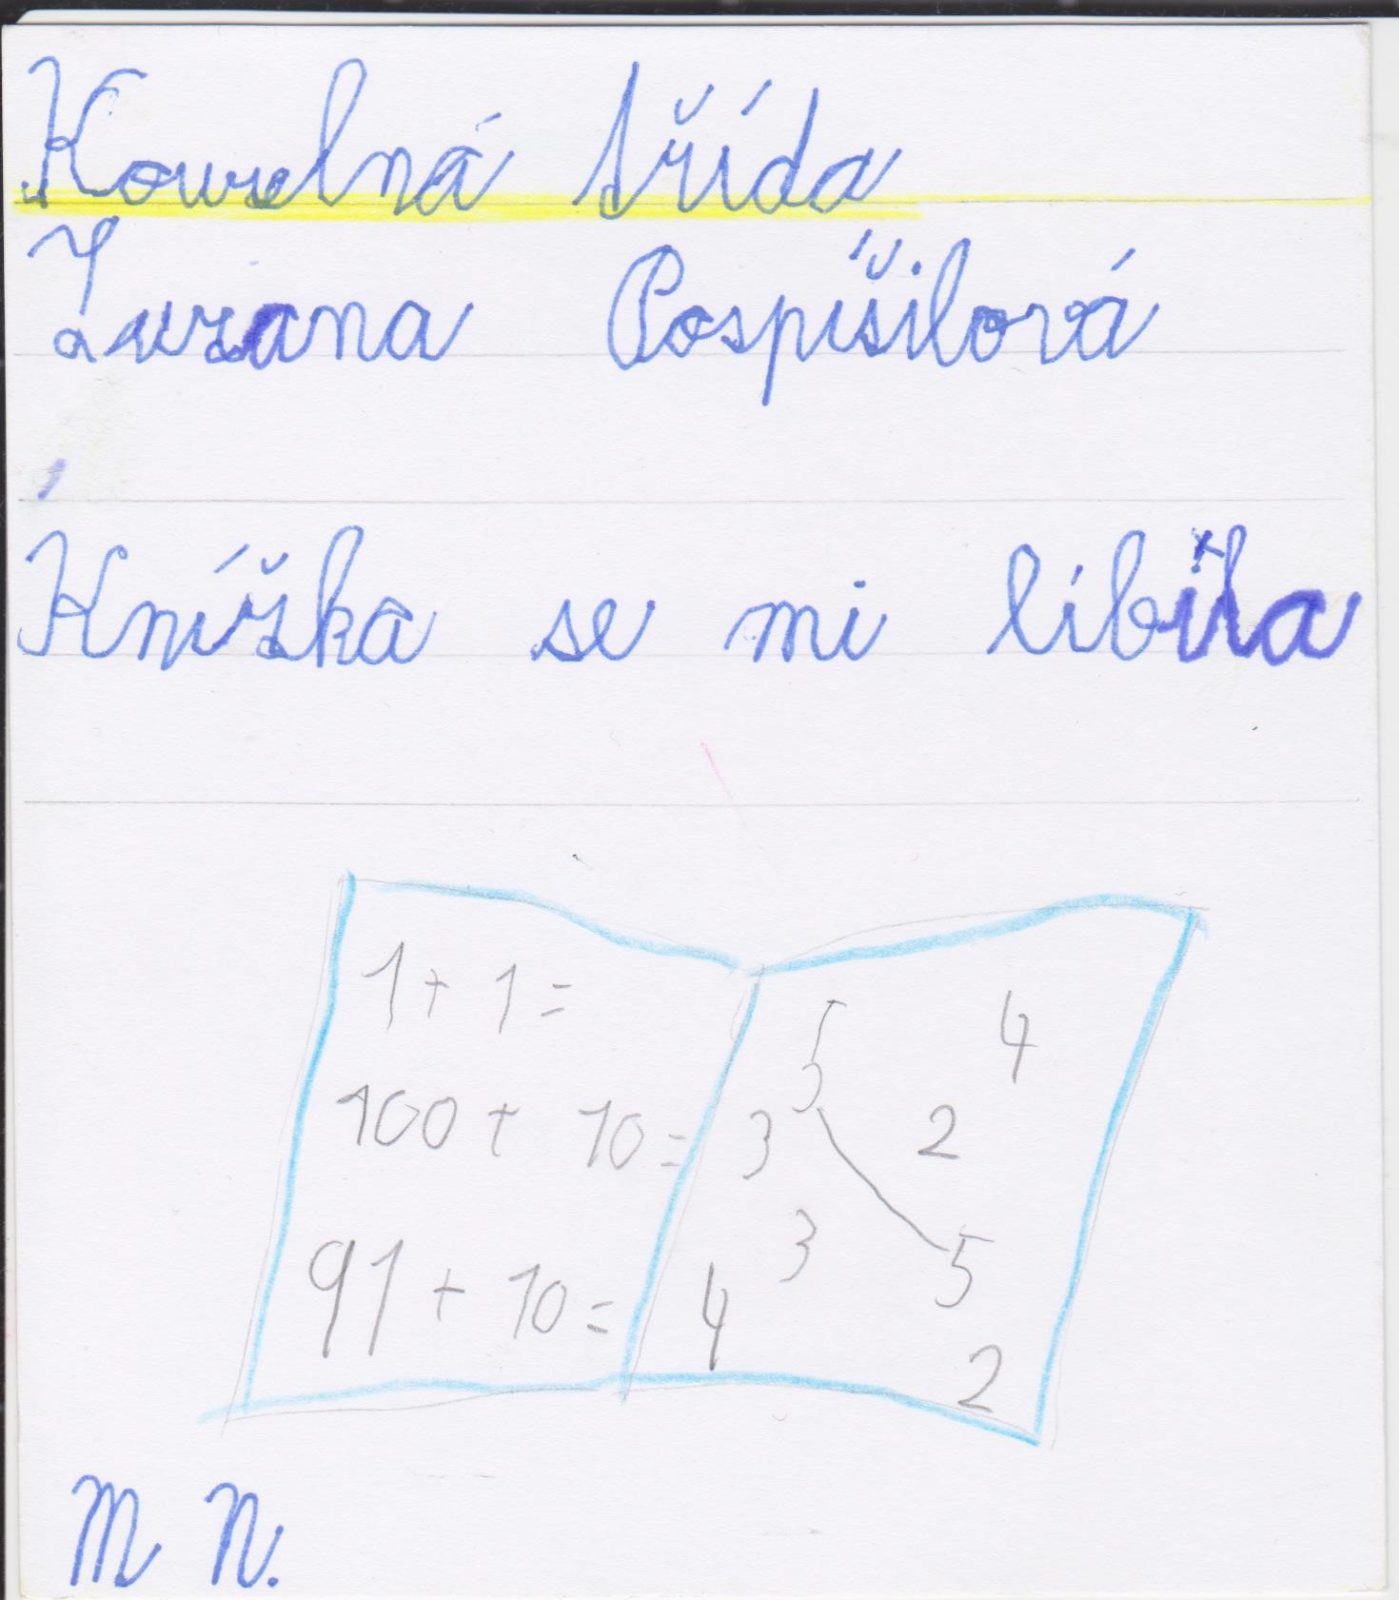 Kouzelná třída
Zuzana Pospíšilová
Knížka se mi líbila
1 + 1 =
100 + 10 =
91 + 10 =
5 4
3 2
3 5
4 2
M N.